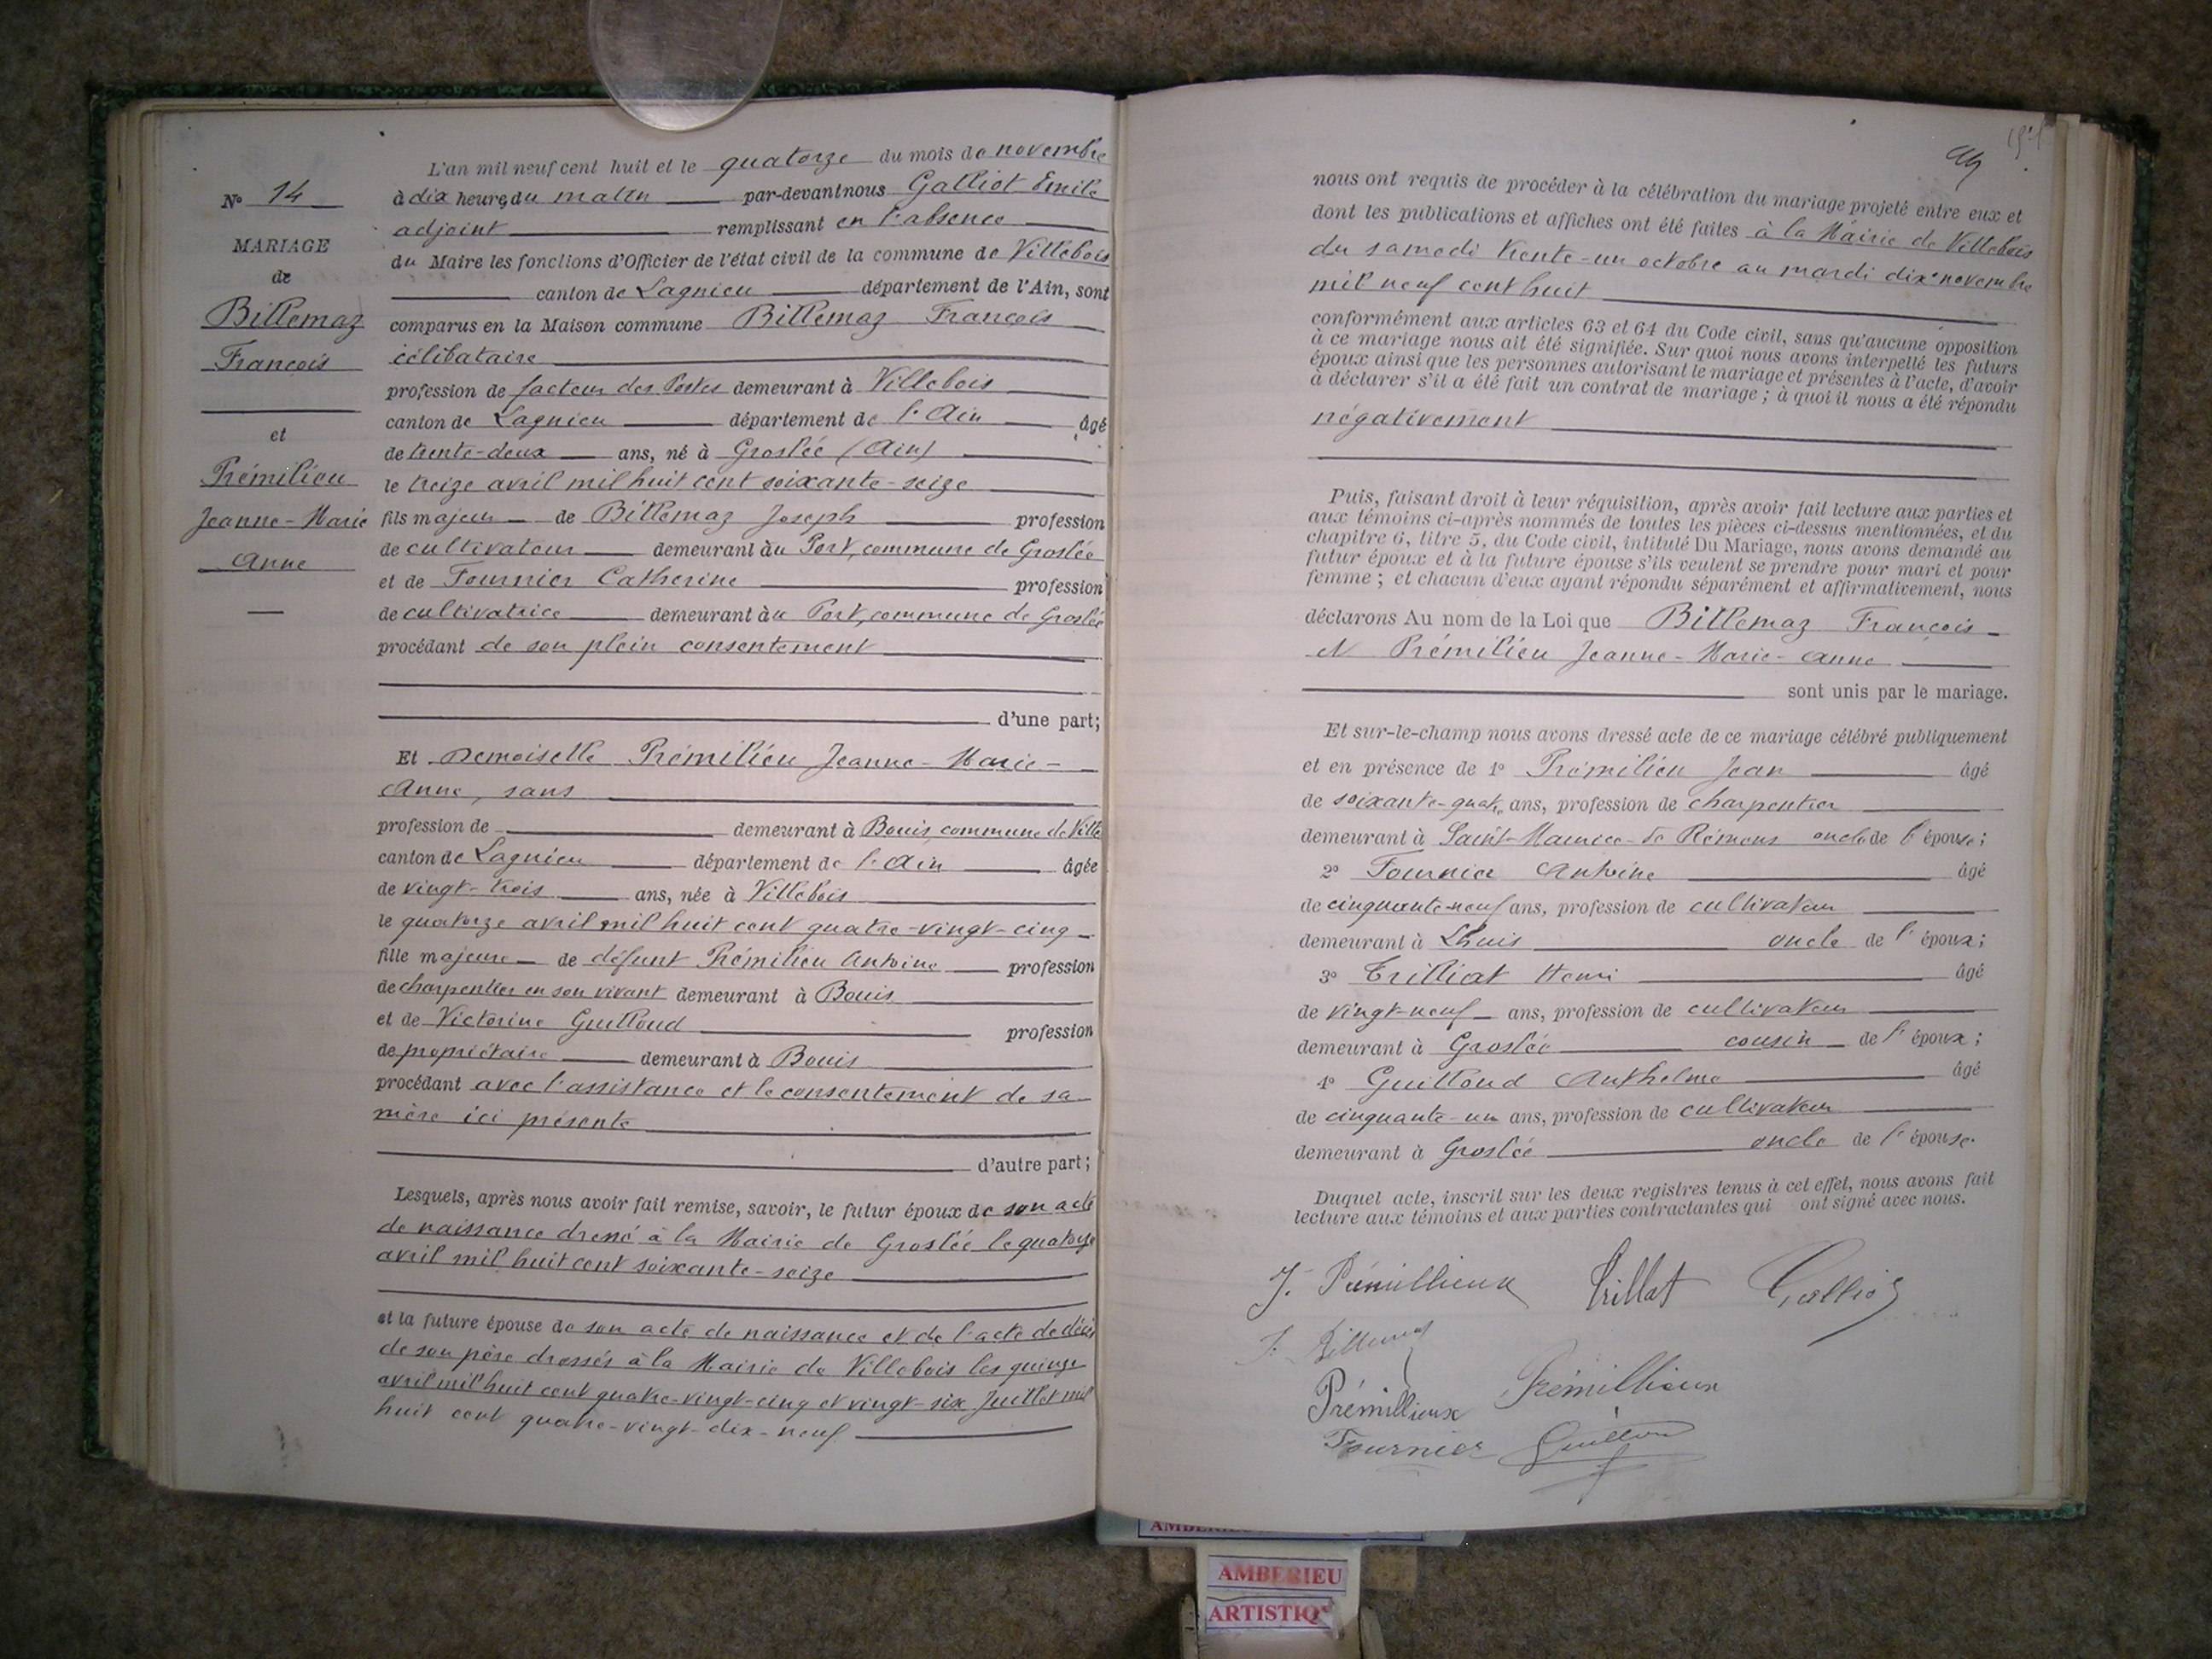 N° 14
MARIAGE
de
Billemaz
François
et
Prémilieu
Jeanne-Marie
Anne
L'an mil neuf cent huit et le quatorze du mois de novembre
à dix heures du matin par-devant nous Galliot Emile
adjoint remplissant en l'absence
du Maire les fonctions d'Officier de l'état civil de la commune de Villebois
canton de Lagnieu département de l'Ain, sont
comparus en la Maison commune Billemaz François
célibataire
profession de facteur des Postes demeurant à Villebois
canton de Lagnieu département de l'Ain âgé
de trente-deux ans, né à Groslée (Ain)
le treize avril mil huit cent soixante-seize
fils majeur de Billemaz Joseph profession
de cultivateur demeurant àu Port, commune de Groslée
et de Fournier Catherine profession
de cultivatrice demeurant àu Port, commune de Groslée
procédant de son plein consentement
d'une part;
Et Demoiselle Prémilieu Jeanne-Marie-
Anne, sans
profession de demeurant à Bouis, commune de Ville
canton de Lagnieu département de l'Ain âgée
de vingt-trois ans, née à Villebois
le quatorze avril mil huit cent quatre-vingt-cinq
fille majeure de défunt Prémilieu Antoine profession
de charpentier en son vivant demeurant à Bouis
et de Victorine Guilloud profession
de propriétaire demeurant à Bouis
procédant avec l'assistance et le consentement de sa
mère ici présente
d'autre part;
Lesquels, après nous avoir fait remise, savoir, le futur époux de son acte
de naissance dressé à la Mairie de Groslée le quatorze
avril mil huit cent soixante-seize
et la future épouse de son acte de naissance et de l'acte de décès
de son père dressés à la Mairie de Villebois les quinze
avril mil huit cent quatre-vingt-cinq et vingt-six Juillet mil
huit cent quatre-vingt-dix-neuf
nous ont requis de procéder à la célébration du mariage projeté entre eux et
dont les publications et affiches ont été faites à la Mairie de Villebois
du samedi trente-un octobre au mardi dix novembre
mil neuf cent huit
conformément aux articles 63 et 64 du Code civil, sans qu'aucune opposition
à ce mariage nous ait été signifiée. Sur quoi nous avons interpellé les futurs
époux ainsi que les personnes autorisant le mariage et présentes à l'acte, d'avoir
à déclarer s'il a été fait un contrat de mariage; à quoi il nous a été répondu
négativement
Puis, faisant droit à leur réquisition, après avoir fait lecture aux parties et
aux témoins ci-après nommés de toutes les pièces ci-dessus mentionnées, et du
chapitre 6, titre 5, du Code civil, intitulé Du Mariage, nous avons demandé au
futur époux et à la future épouse s'ils veulent se prendre pour mari et pour
femme; et chacun d'eux ayant répondu séparément et affirmativement, nous
déclarons Au nom de la Loi que Billemaz François
et Prémilieu Jeanne-Marie-Anne
sont unis par le mariage.
Et sur-le-champ nous avons dressé acte de ce mariage célébré publiquement
et en présence de 1° Prémilieu Jean âgé
de soixante-quatre ans, profession de charpentier
demeurant à Saint-Maurice-de Rémens oncle de l'épouse;
2° Fournier Antoine âgé
de cinquante-neuf ans, profession de cultivateur
demeurant à Lhuis oncle de l'époux;
3° Trilliat Henri âgé
de vingt-neuf ans, profession de cultivateur
demeurant à Groslée cousin de l'époux;
4° Guilloud Anthelme âgé
de cinquante-un ans, profession de cultivateur
demeurant à Groslée oncle de l'épouse.
Duquel acte, inscrit sur les deux registres tenus à cet effet, nous avons fait
lecture aux témoins et aux parties contractantes qui ont signé avec nous.
J. Prémillieux Trillat Galliot
F. Billemaz
Prémillieux Prémillieux
Fournier Guilloud
AMBERIEU
ARTISTIQ